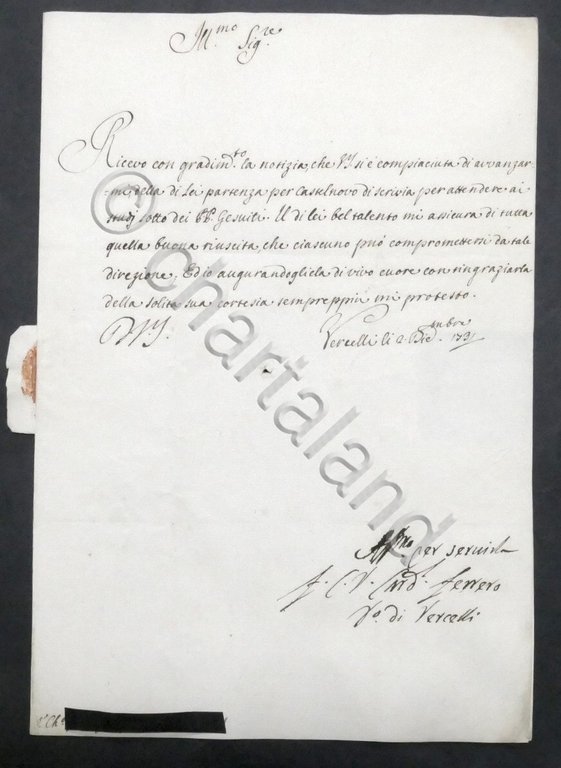 Ill.mo Sig.re
Ricevo con gradim.to la notizia, che V.S. si è compiaciuta di avvanzar-
-mi della di Lei partenza per Castelnovo di scrivia per attendere ai
studj sotto dei PP. Gesuiti. Il di lei bel talento mi assicura di tutta
quella buona riuscita, che ciascuno può compromettersi da tale
direzione. Ed io augurandogliela di vivo cuore con ringraziarla
della solita sua cortesia sempreppiù mi protesto.
D.V.S. Vercelli li 2. Dic.embre 1731
Aff.mo per servirla
f. C. V. Card.l ferrero
V.o di Vercelli
© chartaland